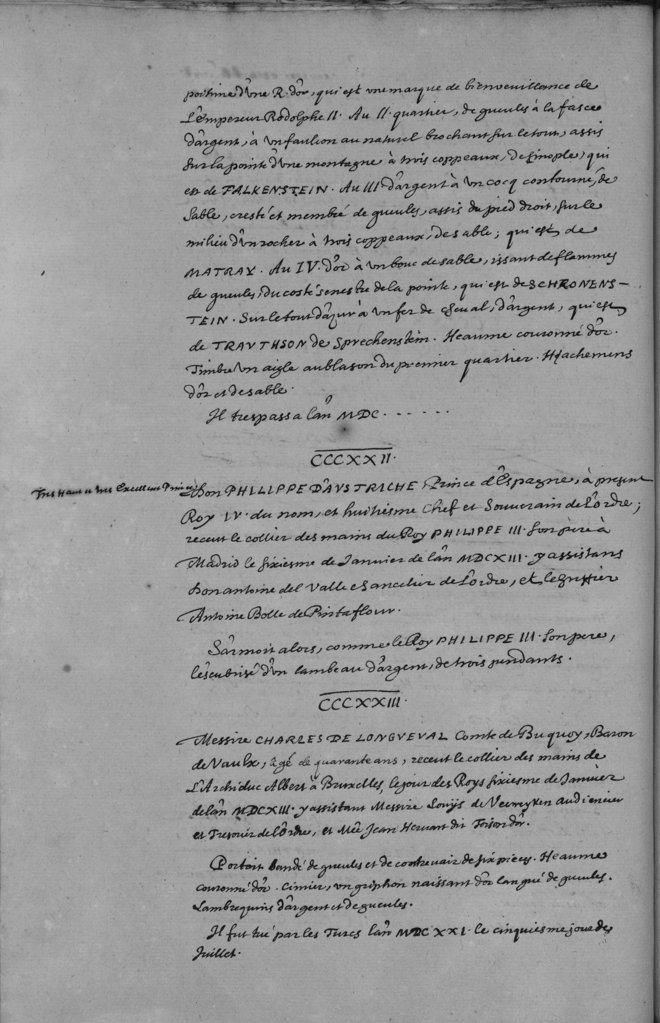 poitrine d'une R. d'or, qui est une marque de bienveuillance de
L'empereur Rodolphe II. Au II. quartier, de gueules à la fasce
d'argent, à un faulion au naturel brochant sur le tout, assis
sur la pointe d'une montagne à trois coppeaux, de sinople, qui
est de FALKENSTEIN. Au III d'argent à un cocq contourné, de
sable, cresté et membré de gueules, assis du pied droit, sur le
milieu d'un rocher à trois coppeaux, de sable; qui est de
MATRAY. Au IV. d'or à un bouc de sable, issant de flammes
de gueules, du costé senestre de la pointe, qui est de SCHRONENS-
TEIN. Sur le tout d'azur à un fer de cheval, d'argent, qui est
de TRAVTHSON de Sprechenstein. Heaume couronné d'or.
Timbre un aigle au blason du premier quartier. Hachemens
d'or et de sable.
Il trespassa l'an MDC . . . . . .
CCCXXII.
Tres Haut et tres Excellent Prince
Don PHILIPPE D'AVSTRICHE Prince d'Espagne, à present
Roy IV. du nom, et huitiesme Chef et Souverain de L'ordre;
receut le collier des mains du Roy PHILIPPE III. son père à
Madrid le sixiesme de Janvier de l'an MDCXIII. y assistans
Don antoine del Valle Chancelier de L'ordre, et le greffier
Antoine Bolle de Pintaflour.
S'armoit alors, comme le Roy PHILIPPE III. son pere,
l'escu brisé d'un lambeau d'argent, de trois pendants.
CCCXXIII.
Messire CHARLES DE LONGVEVAL Comte de Buquoy, Baron
de Vaulx, âgé de quarante ans, receut le collier des mains de
L'Archiduc Albert à Bruxelles, le jour des Roys sixiesme de Janvier
de l'an MDCXIII. y assistant Messire Louijs de Verreyken audiencier
et Tresorier de L'ordre, et Jean Hervart dit Toison d'or.
Portoit bandé de gueules et de contrevair de six pieces. Heaume
couronné d'or. Cimier, un griphon naissant d'or langué de gueules.
Lambrequins d'argent et de gueules.
Il fut tué par les Turcs l'an MDCXXI. le cinquiesme jour de
Juillet.